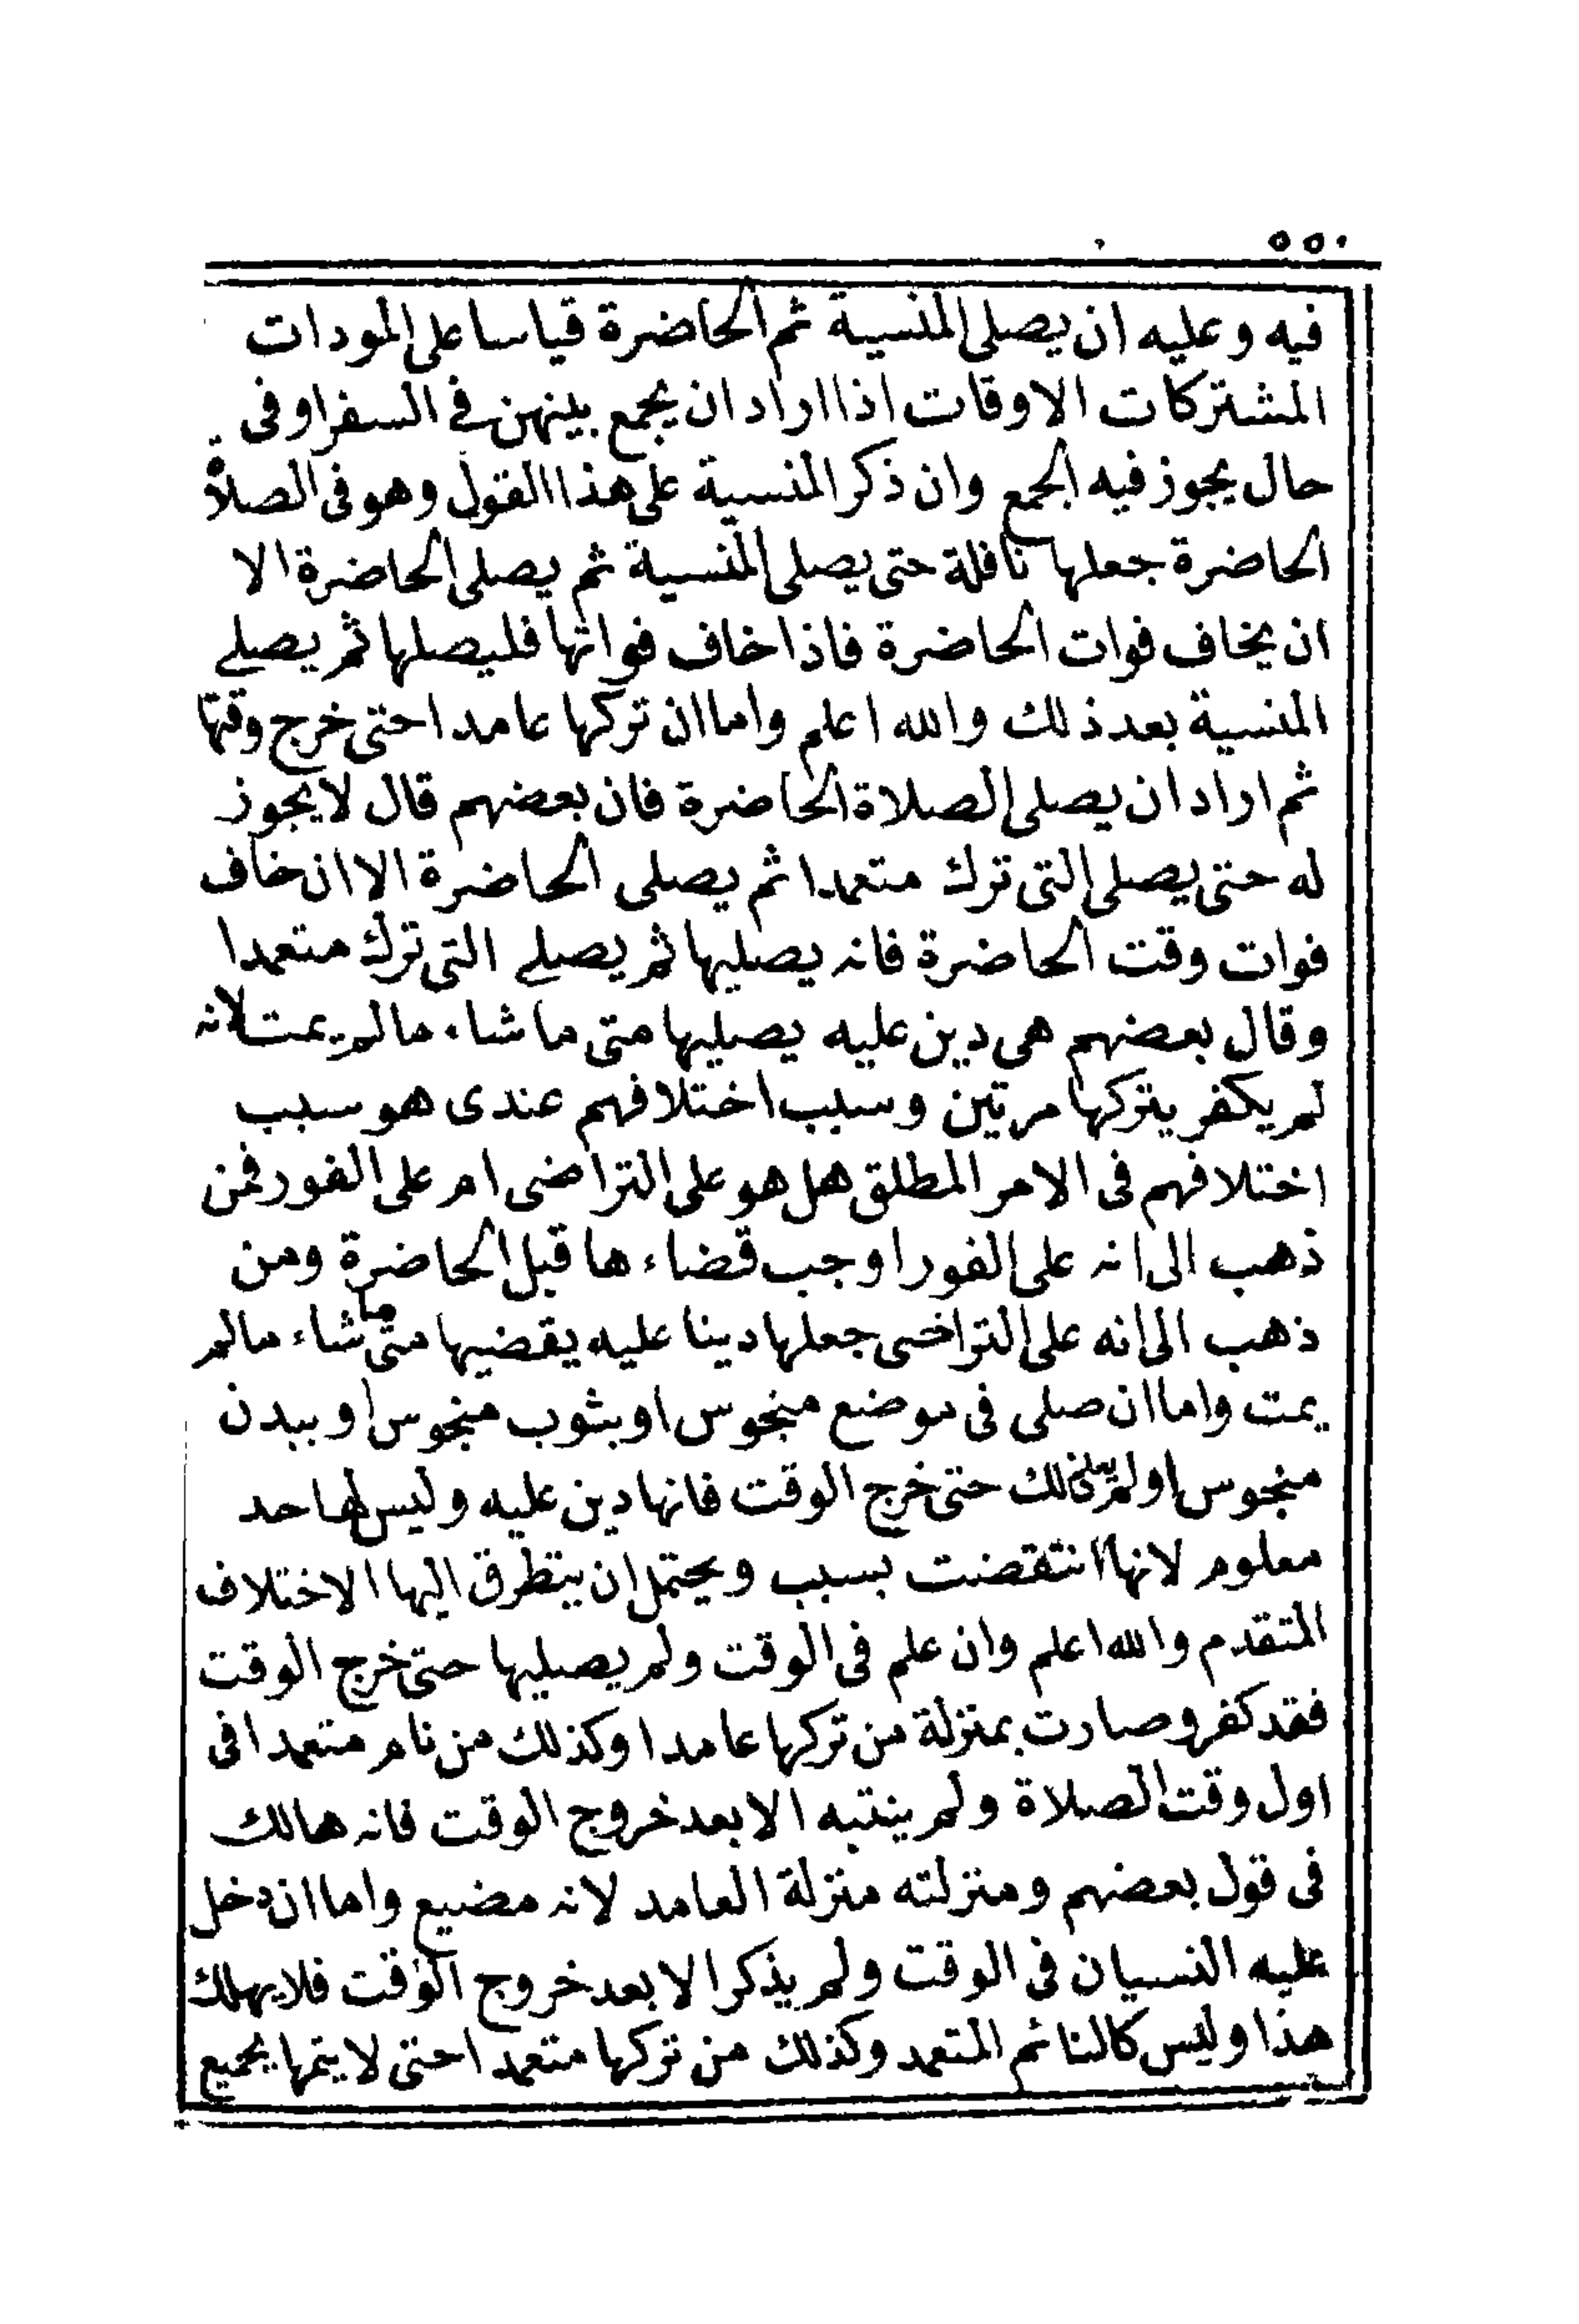 ٥٥٠
فيه وعليه ان يصلى المنسية ثم الحاضرة قياسا على المودات
المشتركات الاوقات اذا اراد ان يجمع بينهن في السفر او فى
حال يجوز فيه الجمع وان ذكر المنسية على هذا القول وهو فى الصلاة
الحاضرة جعلها نافلة حتى يصلى المنسية ثم يصلى الحاضرة الا
ان يخاف فوات الحاضرة فاذا خاف فواتها فليصلها ثم يصلے
المنسية بعد ذلك والله اعلم واما ان تركها عامدا حتى خرج وقتها
ثم اراد ان يصلى الصلاة الحاضرة فان بعضهم قال لا يجوز
له حتى يصلى التى ترك متعمدا ثم يصلى الحاضرة الا ان خاف
فوات وقت الحاضرة فانه يصليها ثم يصلے التى ترك متعمدا
وقال بعضهم هى دين عليه يصليها متى ما شاء مالم يمت لانه
لم يكفر بتركها مرتين وسبب اختلافهم عندى هو سبب
اختلافهم فى الامر المطلق هل هو على التراضى ام على الفور فمن
ذهب الى انه على الفور اوجب قضاءها قبل الحاضرة ومن
ذهب الى انه على التراخى جعلها دينا عليه يقضيها متى ما شاء مالم
يمت واما ان صلى فى موضع منجوس او بثوب منجوس او ببدن
منجوس او لم يعلم ذلك حتى خرج الوقت فانها دين عليه وليس لها حد
معلوم لانها انتقضت بسبب ويحتمل ان يتطرق اليها الاختلاف
المتقدم والله اعلم وان علم فى الوقت ولم يصليها حتى خرج الوقت
فقد كفر وصارت بمنزلة من تركها عامدا وكذلك من نام متعمدا فى
اول وقت الصلاة ولم ينتبه الا بعد خروج الوقت فانه هالك
فى قول بعضهم ومنزلته منزلة العامد لانه مضيع واما ان دخل
عليه النسيان فى الوقت ولم يذكر الا بعد خروج الوقت فلا يهلك
هذا وليس كالنائم المتعمد وكذلك من تركها متعمدا حتى لا يتمها بجميع